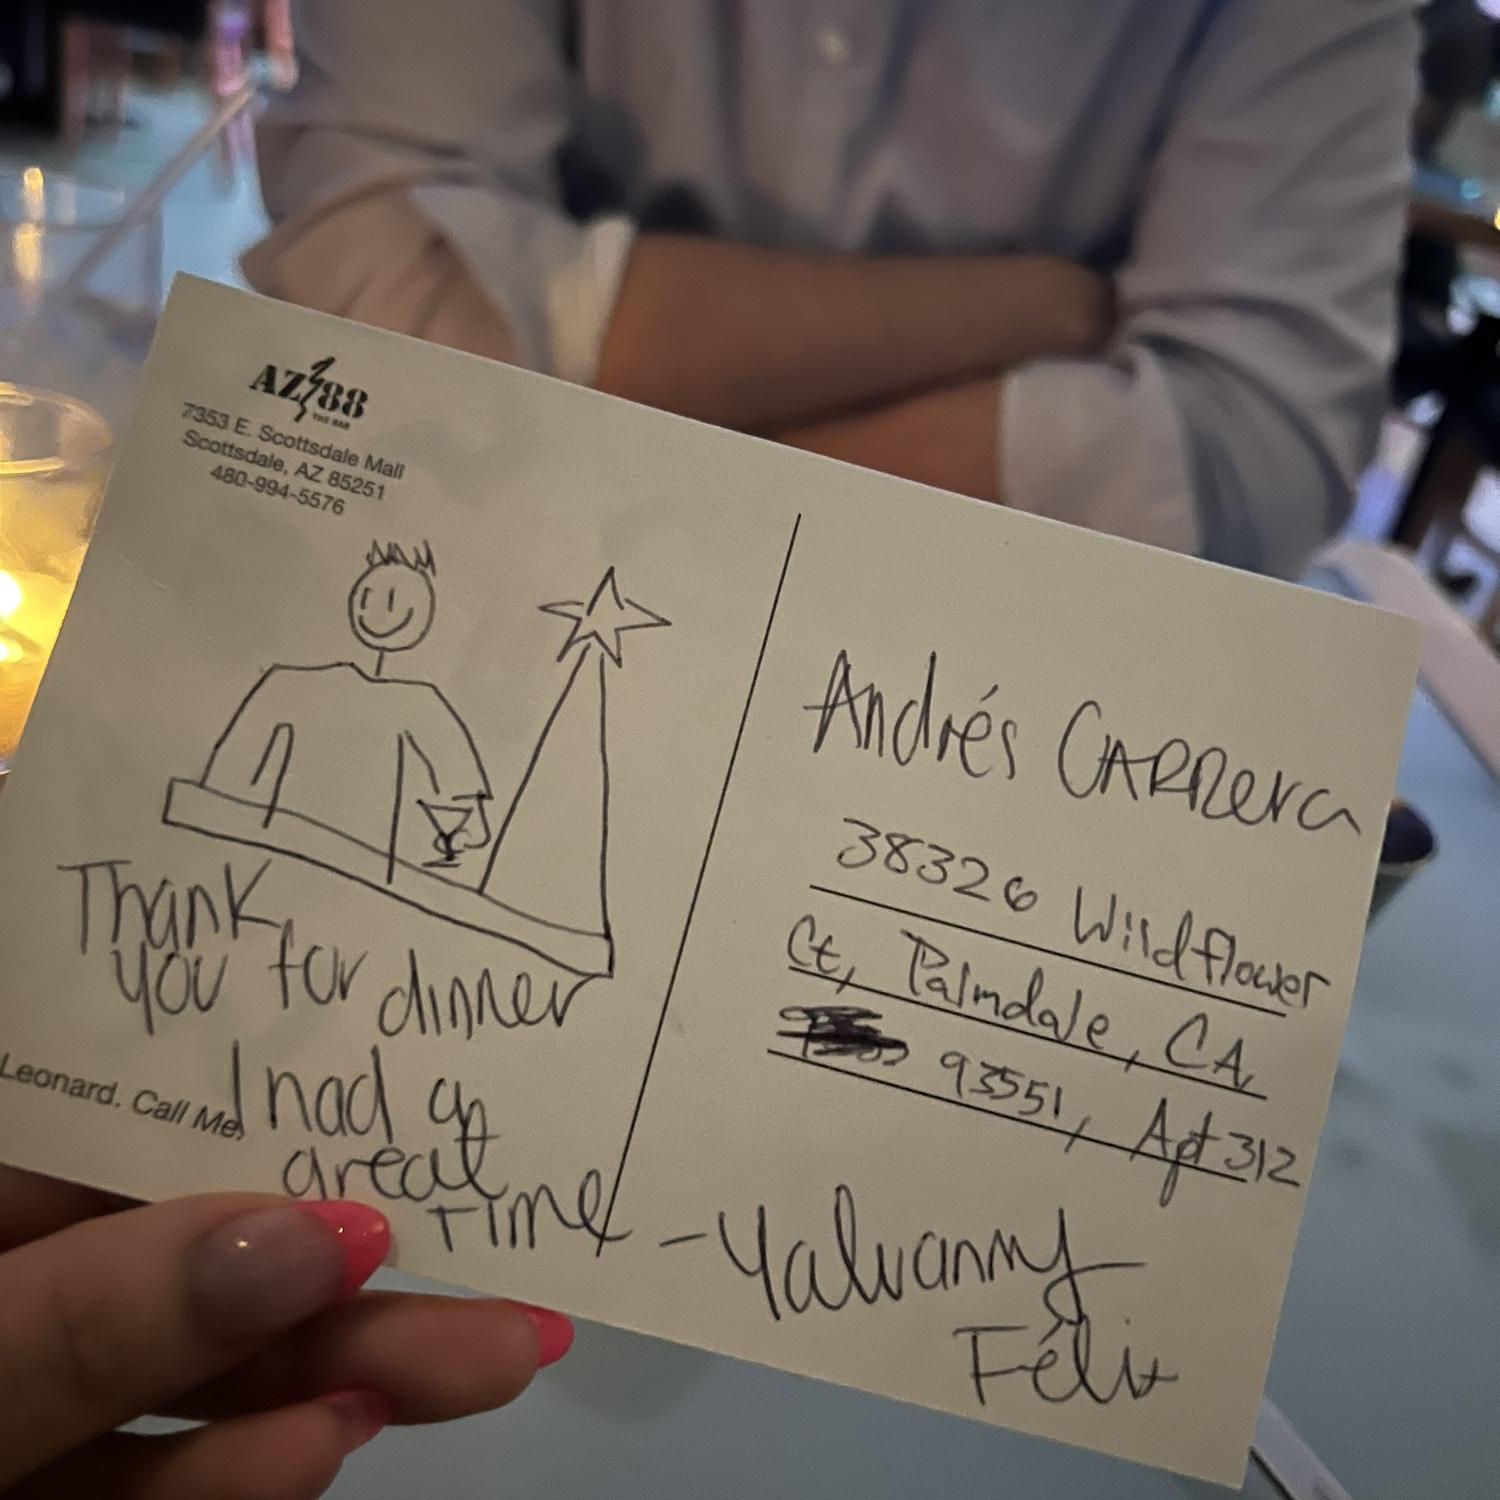 AZ88
THE BAR
7353 E. Scottsdale Mall
Scottsdale, AZ 85251
480-994-5576
Thank
you for dinner
Leonard. Call Me,
I had a
great
time
Andrés CARRera
38326 Wildflower
Ct, Palmdale, CA,
93551, Apt 312
- Yalvanny
Félix